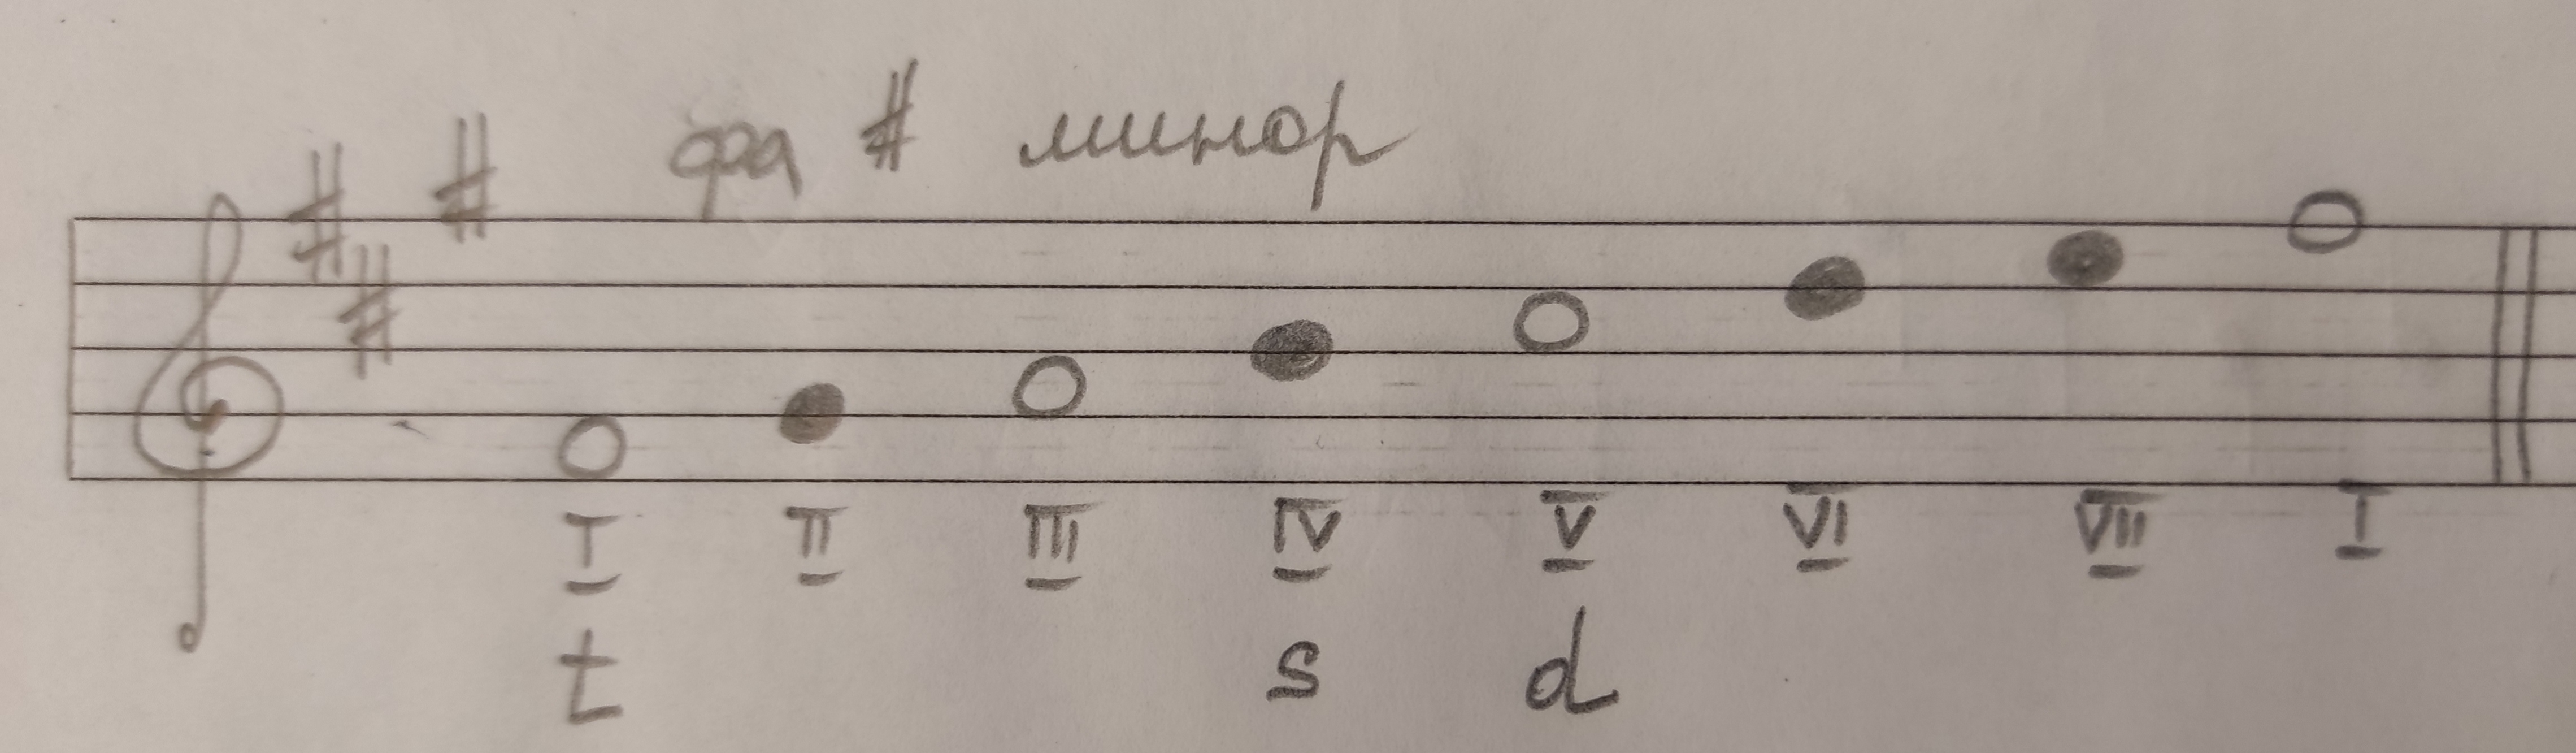 фа # минор
I II III IV V VI VII I
t s d